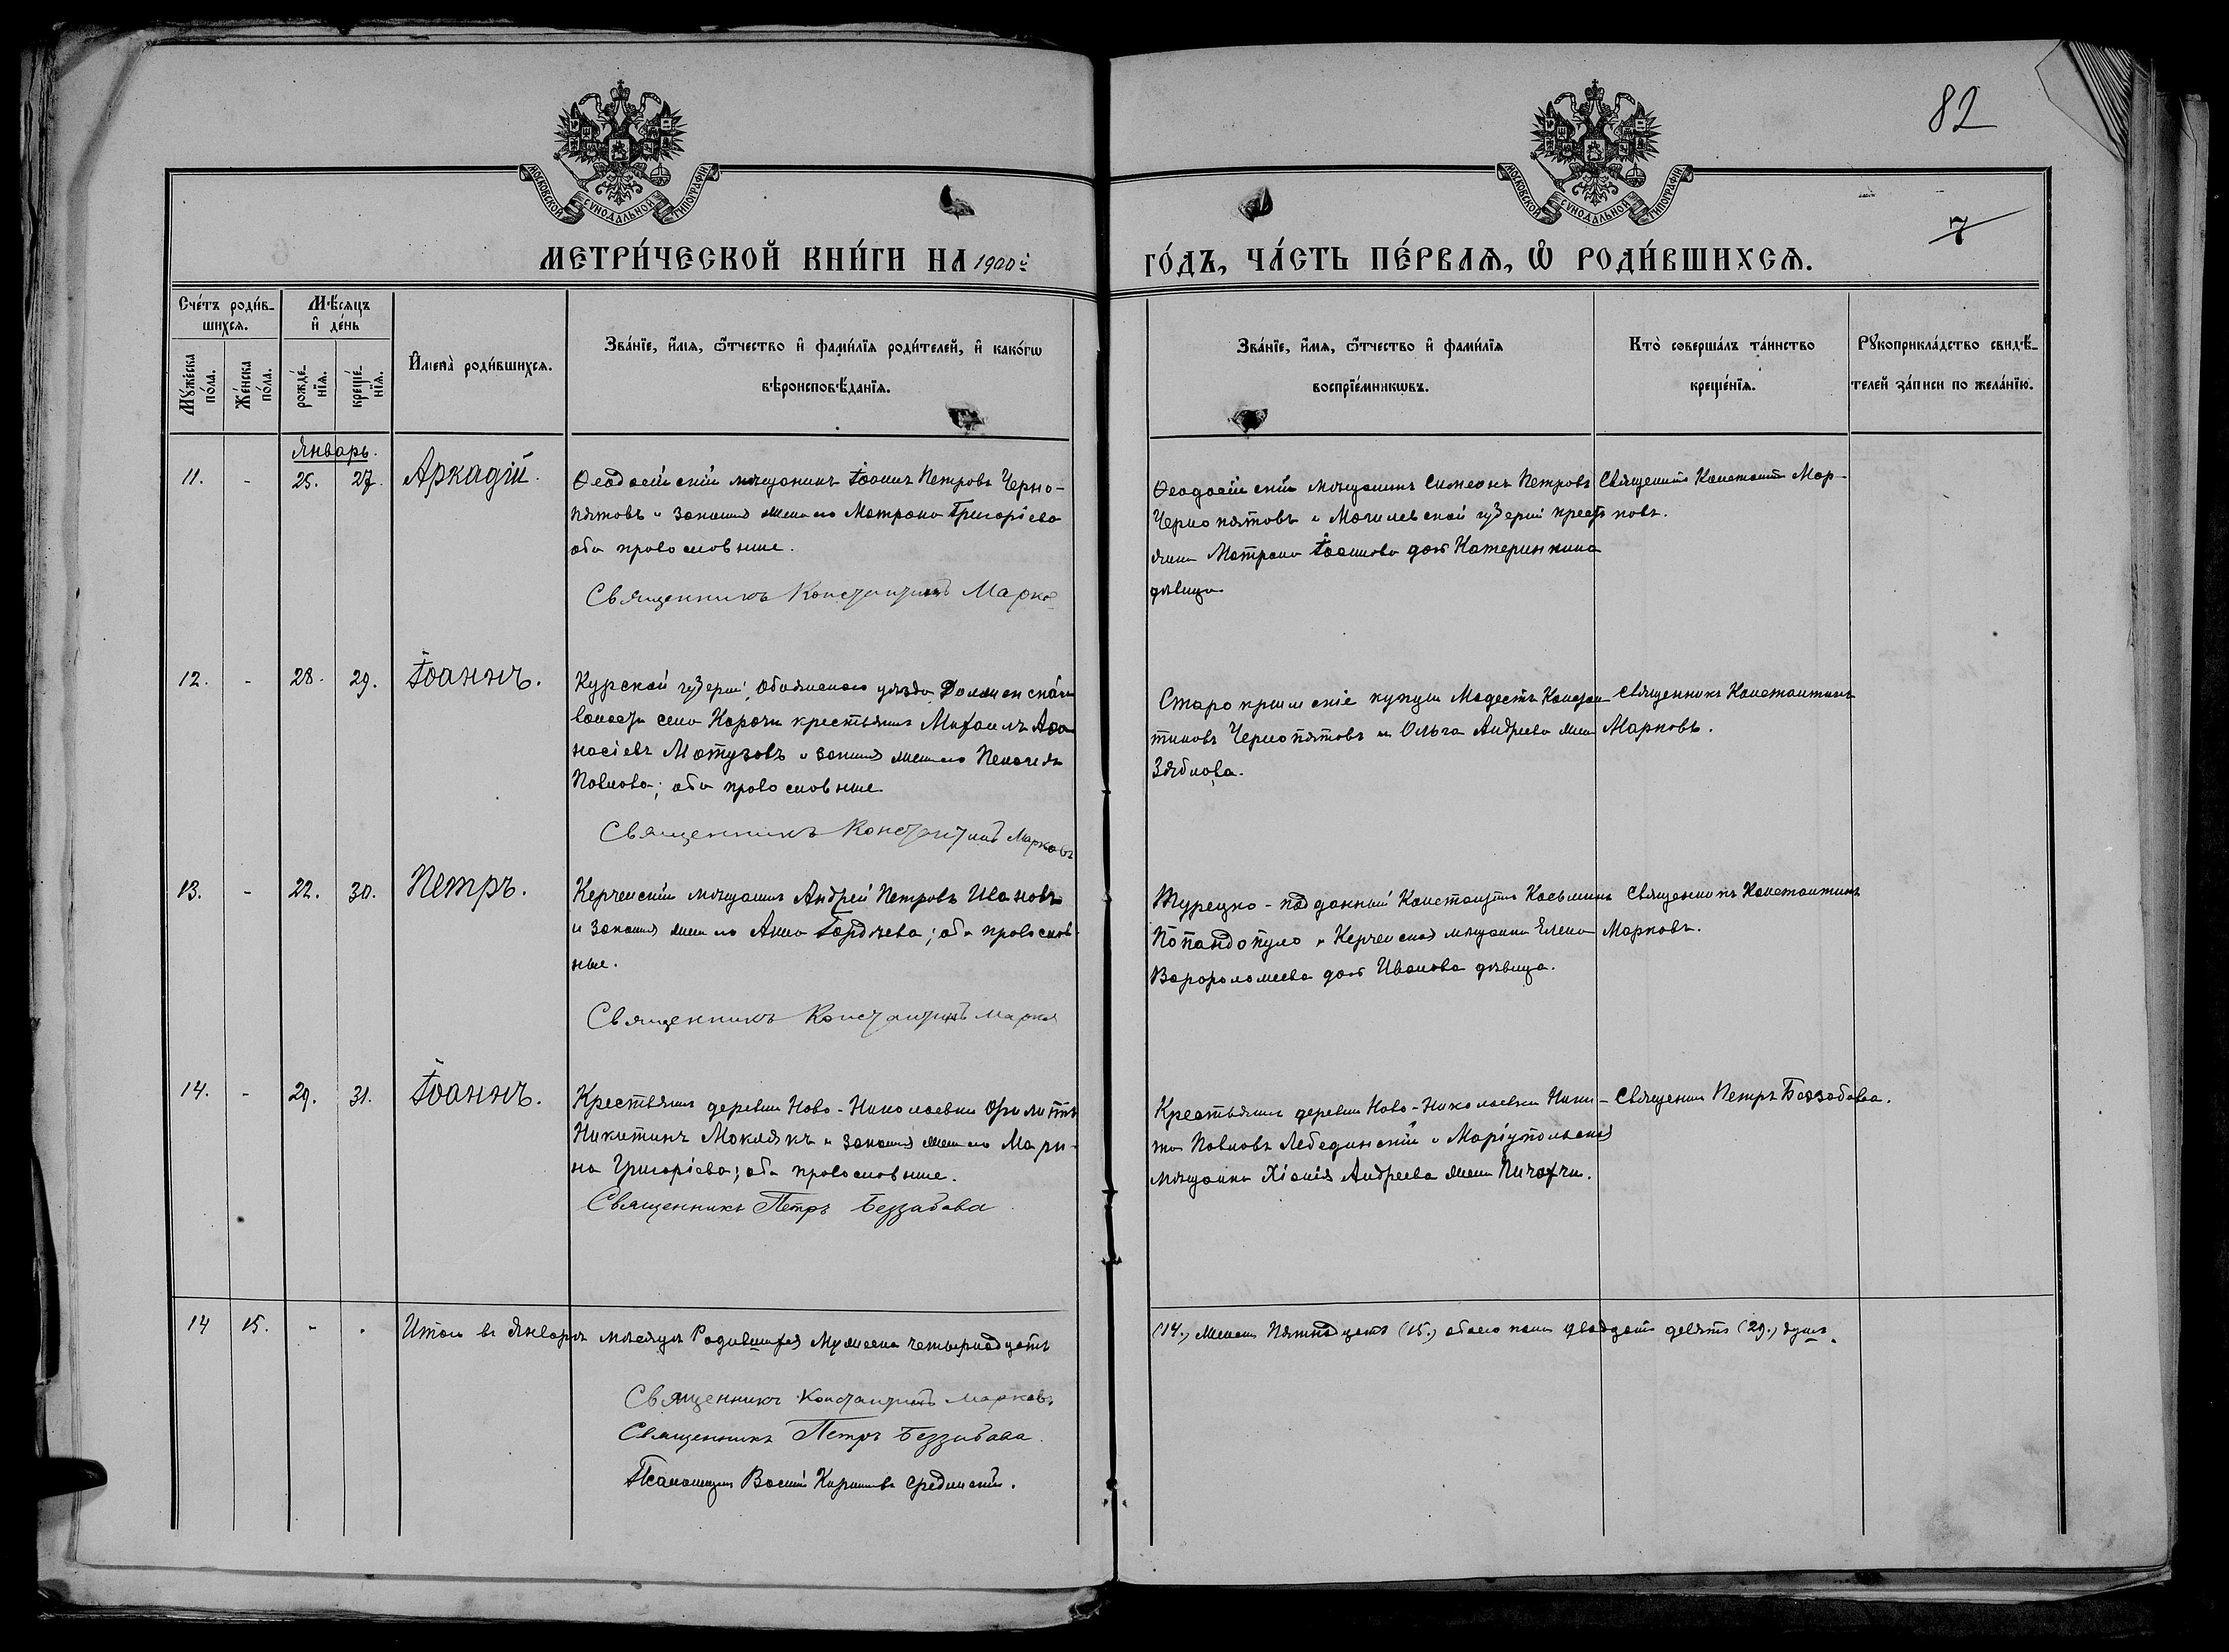 82
7
МОСКОВСКОЙ СѴНОДАЛЬНОЙ ТИПОГРАФІИ
МОСКОВСКОЙ СѴНОДАЛЬНОЙ ТИПОГРАФІИ
МЕТРИ́ЧЕСКОЙ КНИ́ГИ НА 1900й
ГО́ДЪ, ЧА́СТЬ ПЕ́РВАѦ, Ѿ РОДИ́ВШИХСѦ.
Сче́тъ роди́в-
шихсѧ.
Мꙋ́жеска по́ла.
Же́нска по́ла.
Мѣ́сѧцъ
и҆ де́нь
рожде́-
нїѧ.
креще́-
нїѧ.
И҆мена̀ роди́вшихсѧ.
Зва́нїе, и҆́мѧ, ѻ҆́тчество и҆ фами́лїѧ роди́телей, и҆ како́гѡ
вѣроисповѣ́данїѧ.
Зва́нїе, и҆́мѧ, ѻ҆́тчество и҆ фами́лїѧ
воспрїе́мникѡвъ.
Кто̀ соверша́лъ та́инство
креще́нїѧ.
Рꙋкоприкла́дство свидѣ́-
телей за́писи по жела́нїю.
Январь.
11. - 25. 27. Аркадій.
Ѳеодосійскій мѣщанинъ Іоаннъ Петровъ Черно-
пятовъ и законная жена его Матрона Григоріева
оба православные.
Священникъ Константинъ Марков
Ѳеодосійскій мѣщанинъ Симеонъ Петровъ
Чернопятовъ и Могилевской губерніи крестья
янка Матрона Іоаннова дочь Катеринкина
дѣвица.
Священникъ Константинъ Мар-
ковъ.
12. - 28. 29. Іоаннъ.
Курской губерніи, Обоянскаго уѣзда
волости села Корочи крестьянинъ Михаилъ Аѳа
насіевъ Матузовъ и законная жена его Пелагія
Павлова; оба православные
Священникъ Константинъ Марковъ
Старокрымскіе купцы Модестъ Констан
тиновъ Чернопятовъ и Ольга Андреева жена
Зяблова.
Священникъ Константинъ
Марковъ.
13. - 22. 30. Петръ.
Керченскій мѣщанинъ Андрей Петровъ Ивановъ
и законная жена его Анна Гордѣева; оба православ
ные.
Священникъ Константинъ Марков
Турецко-подданный Константинъ Косьминъ
Попандопуло и Керченская мѣщанка Елена
Варфоломеева дочь Иванова дѣвица.
Священникъ Константинъ
Марковъ.
14. - 29. 31. Іоаннъ.
Крестьянинъ деревни Ново-Николаевки
Никитинъ Моклякъ и законная жена его Мари-
на Григоріева; оба православные.
Священникъ Петръ Беззабава
Крестьянинъ деревни Ново-Николаевки Ники-
та Павловъ Лебединскій и Маріупольская
мѣщанка Хіонія Андреева жена Пичахчи.
Священникъ Петръ Беззабава.
14 15. - - Итого въ Январѣ мѣсяцѣ Родившихся Мужеска четырнадцать
(14.) Женска Пятнадцать (15.) обоего пола двадцать девять (29.) душъ.
Священникъ Константинъ Марковъ
Священникъ Петръ Беззабава.
Псаломщикъ Василій Срединскій.